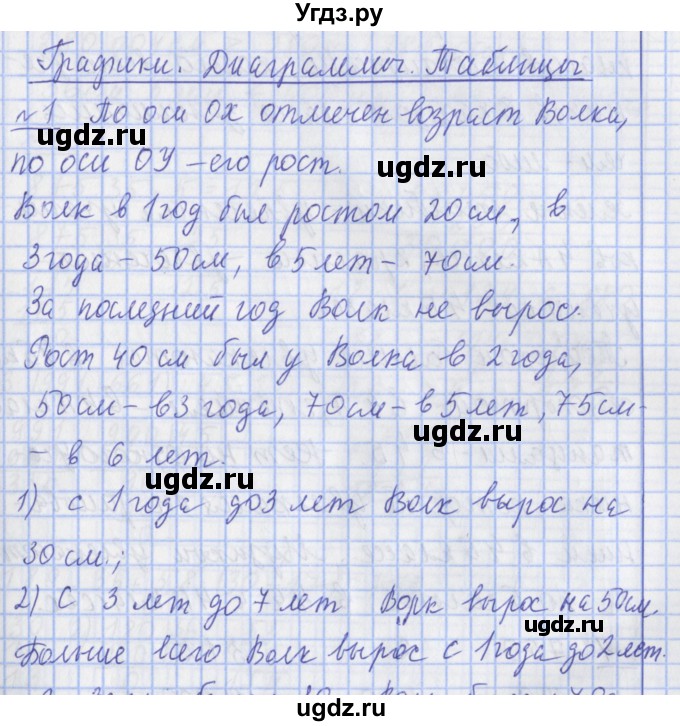 Угдз.ру
Графики. Диаграммы. Таблицы
№1 По оси ОХ отмечен возраст Волка,
ugdz.ru
по оси ОУ – его рост.
ugdz.ru
Волк в 1 год был ростом 20 см., в
3 года – 50 см, в 5 лет – 70 см.
За последний год Волк не вырос.
Рост 40 см был у Волка в 2 года,
50 см – в 3 года, 70 см – в 5 лет, 75 см –
ugdz.ru
– в 6 лет.
ugdz.ru
1) с 1 года до 3 лет Волк вырос на
30 см.;
2) С 3 лет до 7 лет Ворк вырос на 50 см.
ugdz.ru
Больше всего Волк вырос с 1 года до 2 лет.
ugdz.ru